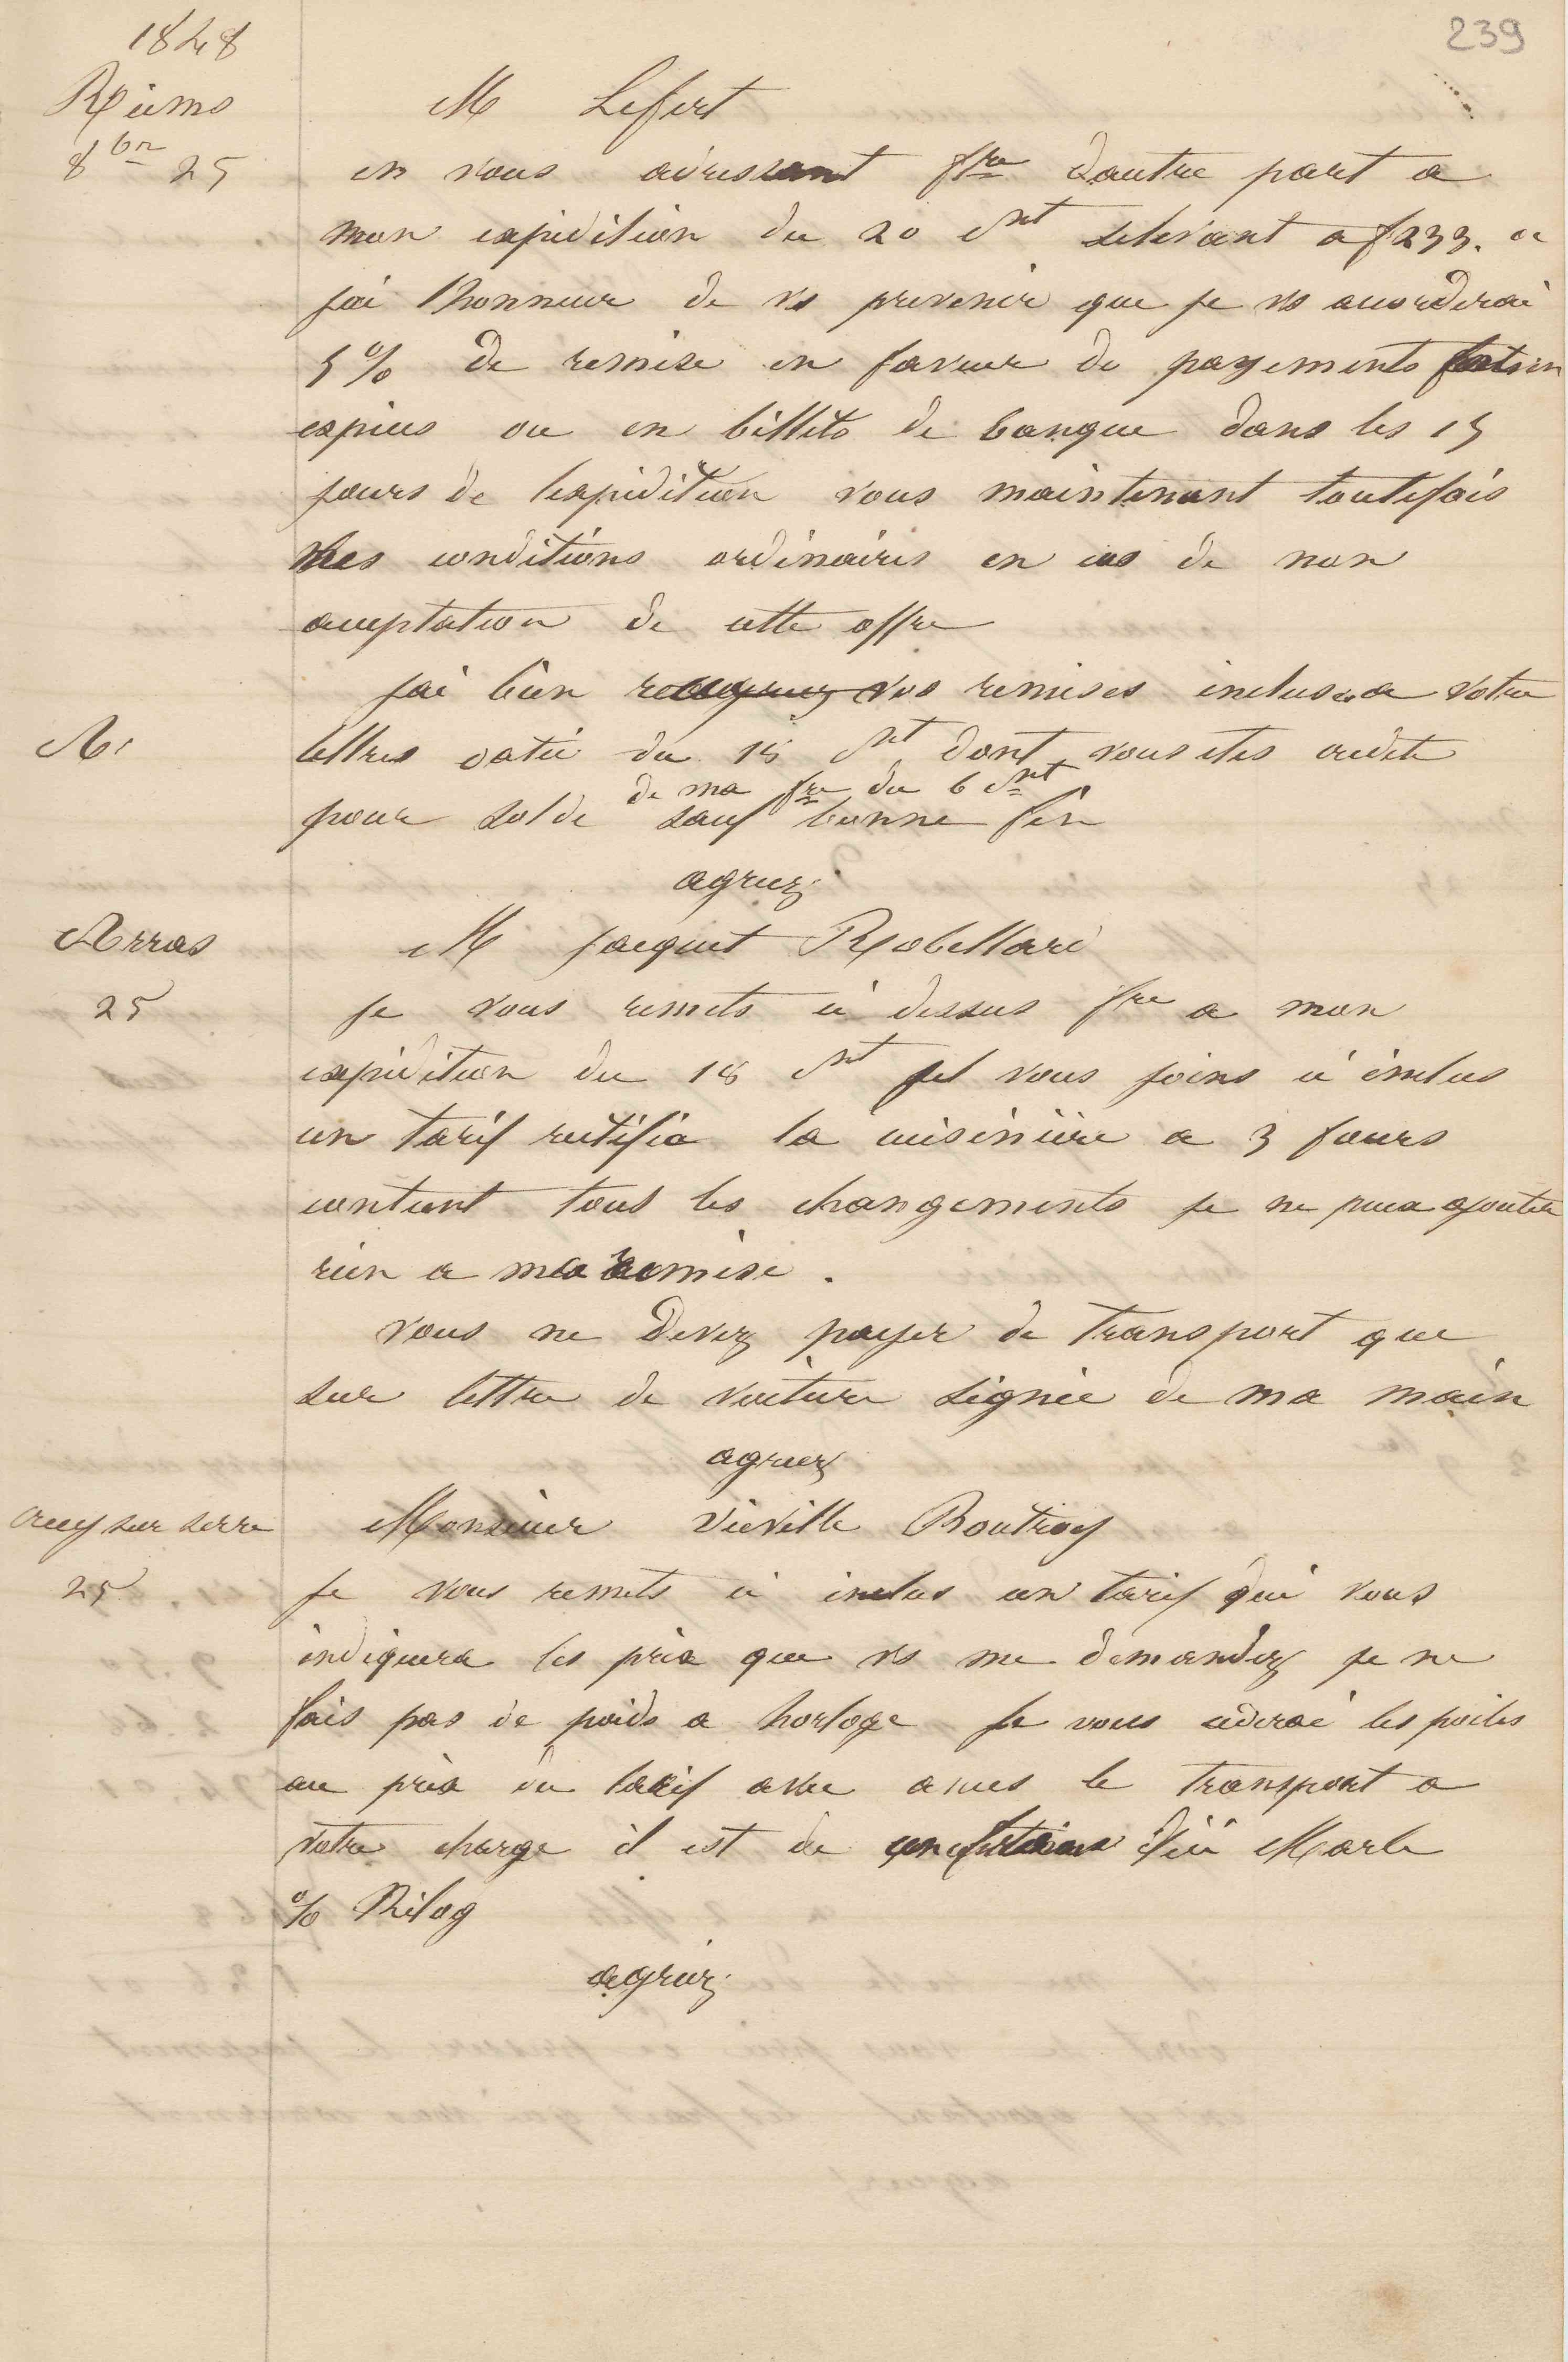 239
1848
Reims
8bre 25
M Lefert
en vous adressant fre dautre part a
mon expédition du 20 Ct selevant a f 233.
jai lhonneur de vs prevenir que je vs accorderai
5% de remise en faveur de payements faits en
especes ou en billets de banque dans les 15
jours de lexpédition vous maintenant toutefois
mes conditions ordinaires en cas de non
acceptation de cette offre
jai bien vos remises incluses a votre
Ac
lettres datée du 18 Ct dont vous etes crédité
de ma fre du 6 Ct
pour solde sauf bonne fin
agreez
Arras
M Jacquet Robellard
25
je vous remets ci dessus fre a mon
expédition du 18 Ct je vous joins ci inclus
un tarif rectifié la cuisinière a 3 fours
contient tous les changements je ne peux ajouter
rien a ma remise.
vous ne devez payer de transport que
sur lettre de voiture signée de ma main
agreez
Crecy sur serre
Monsieur Vieville Boutroy
25
je vous remets ci inclus un tarif qui vous
indiquera les prix que vs me demandez je ne
fais pas de poids a horloge je vous cederai les poiles
au prix du tarif avec le transport a
votre charge il est de dici Marle
% Kilog
agreez